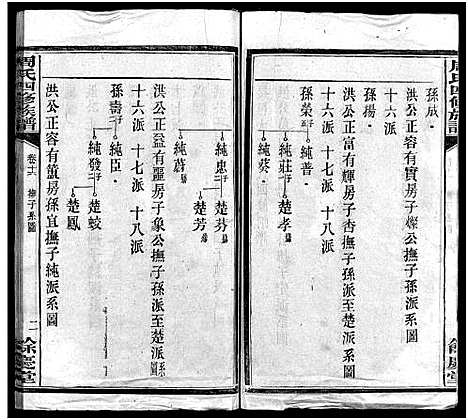 周氏四修族譜
孫成
洪公正容有實房子燦公撫子孫派系圖
十六派 十七派 十八派
孫楊
洪公正富有輝房子香撫子孫派至楚派系圖
十六派 十七派 十八派
孫榮 純莊 楚孝
純普 純葵
餘慶堂
周氏四修族譜
卷十六 撫子系圖
二
餘慶堂
洪公正益有驅房子象公撫子孫派至楚派系圖
十六派 十七派 十八派
純忠 楚芬
楚芳
純蔚
孫壽 純臣
純發 楚蛟
楚鳳
洪公正容有董房孫宜撫子純派系圖